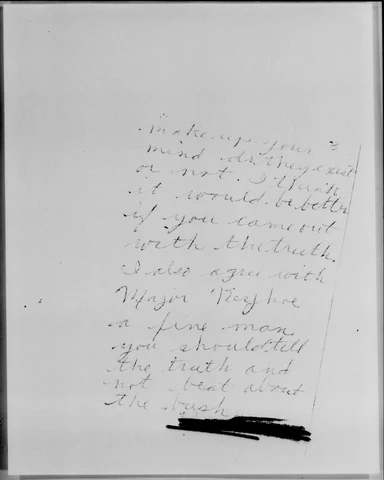 make up your
mind do they exist
or not. I think
it would be better
if you came out
with the truth.
I also agree with
Major Keyhoe
a fine man
you should tell
the truth and
not beat about
the bush